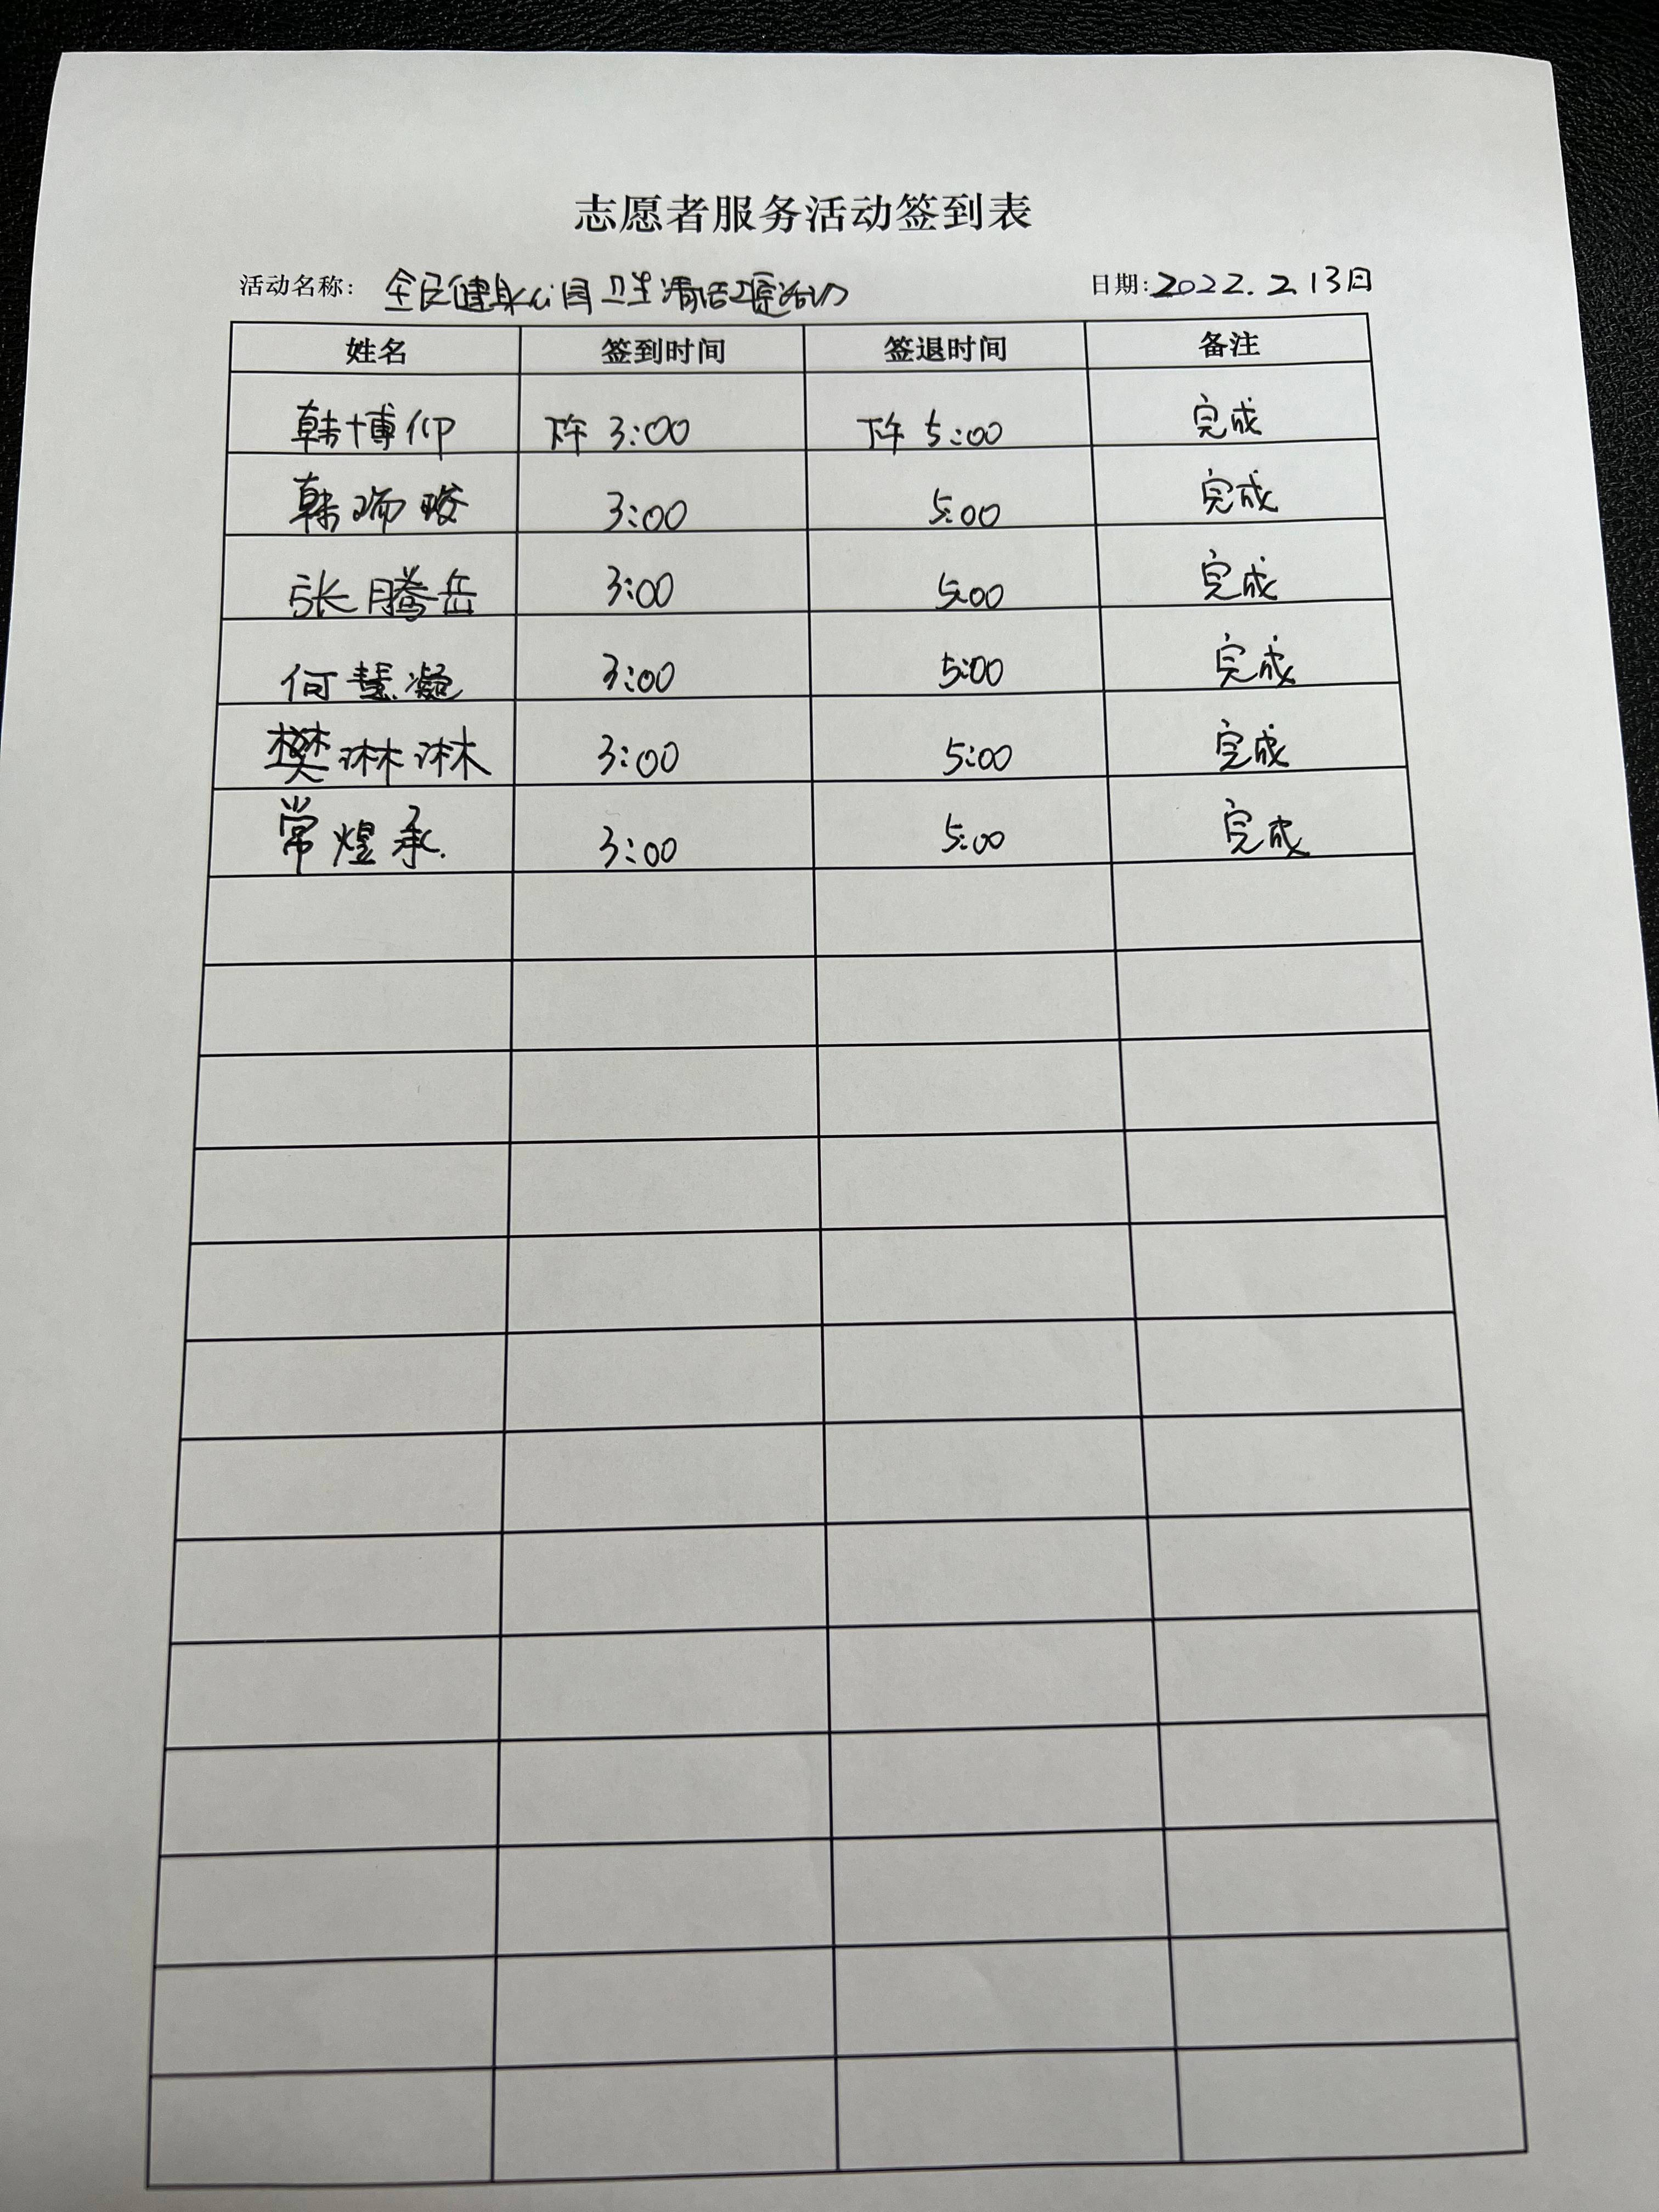 志愿者服务活动签到表
活动名称: 全民健身公园卫生清洁志愿活动 日期:2022.2.13日
姓名 签到时间 签退时间 备注
韩博仰 下午 3:00 下午 5:00 完成
韩瑞骏 3:00 5:00 完成
张腾岳 3:00 5:00 完成
何慧凝 3:00 5:00 完成
樊琳琳 3:00 5:00 完成
常煜承 3:00 5:00 完成